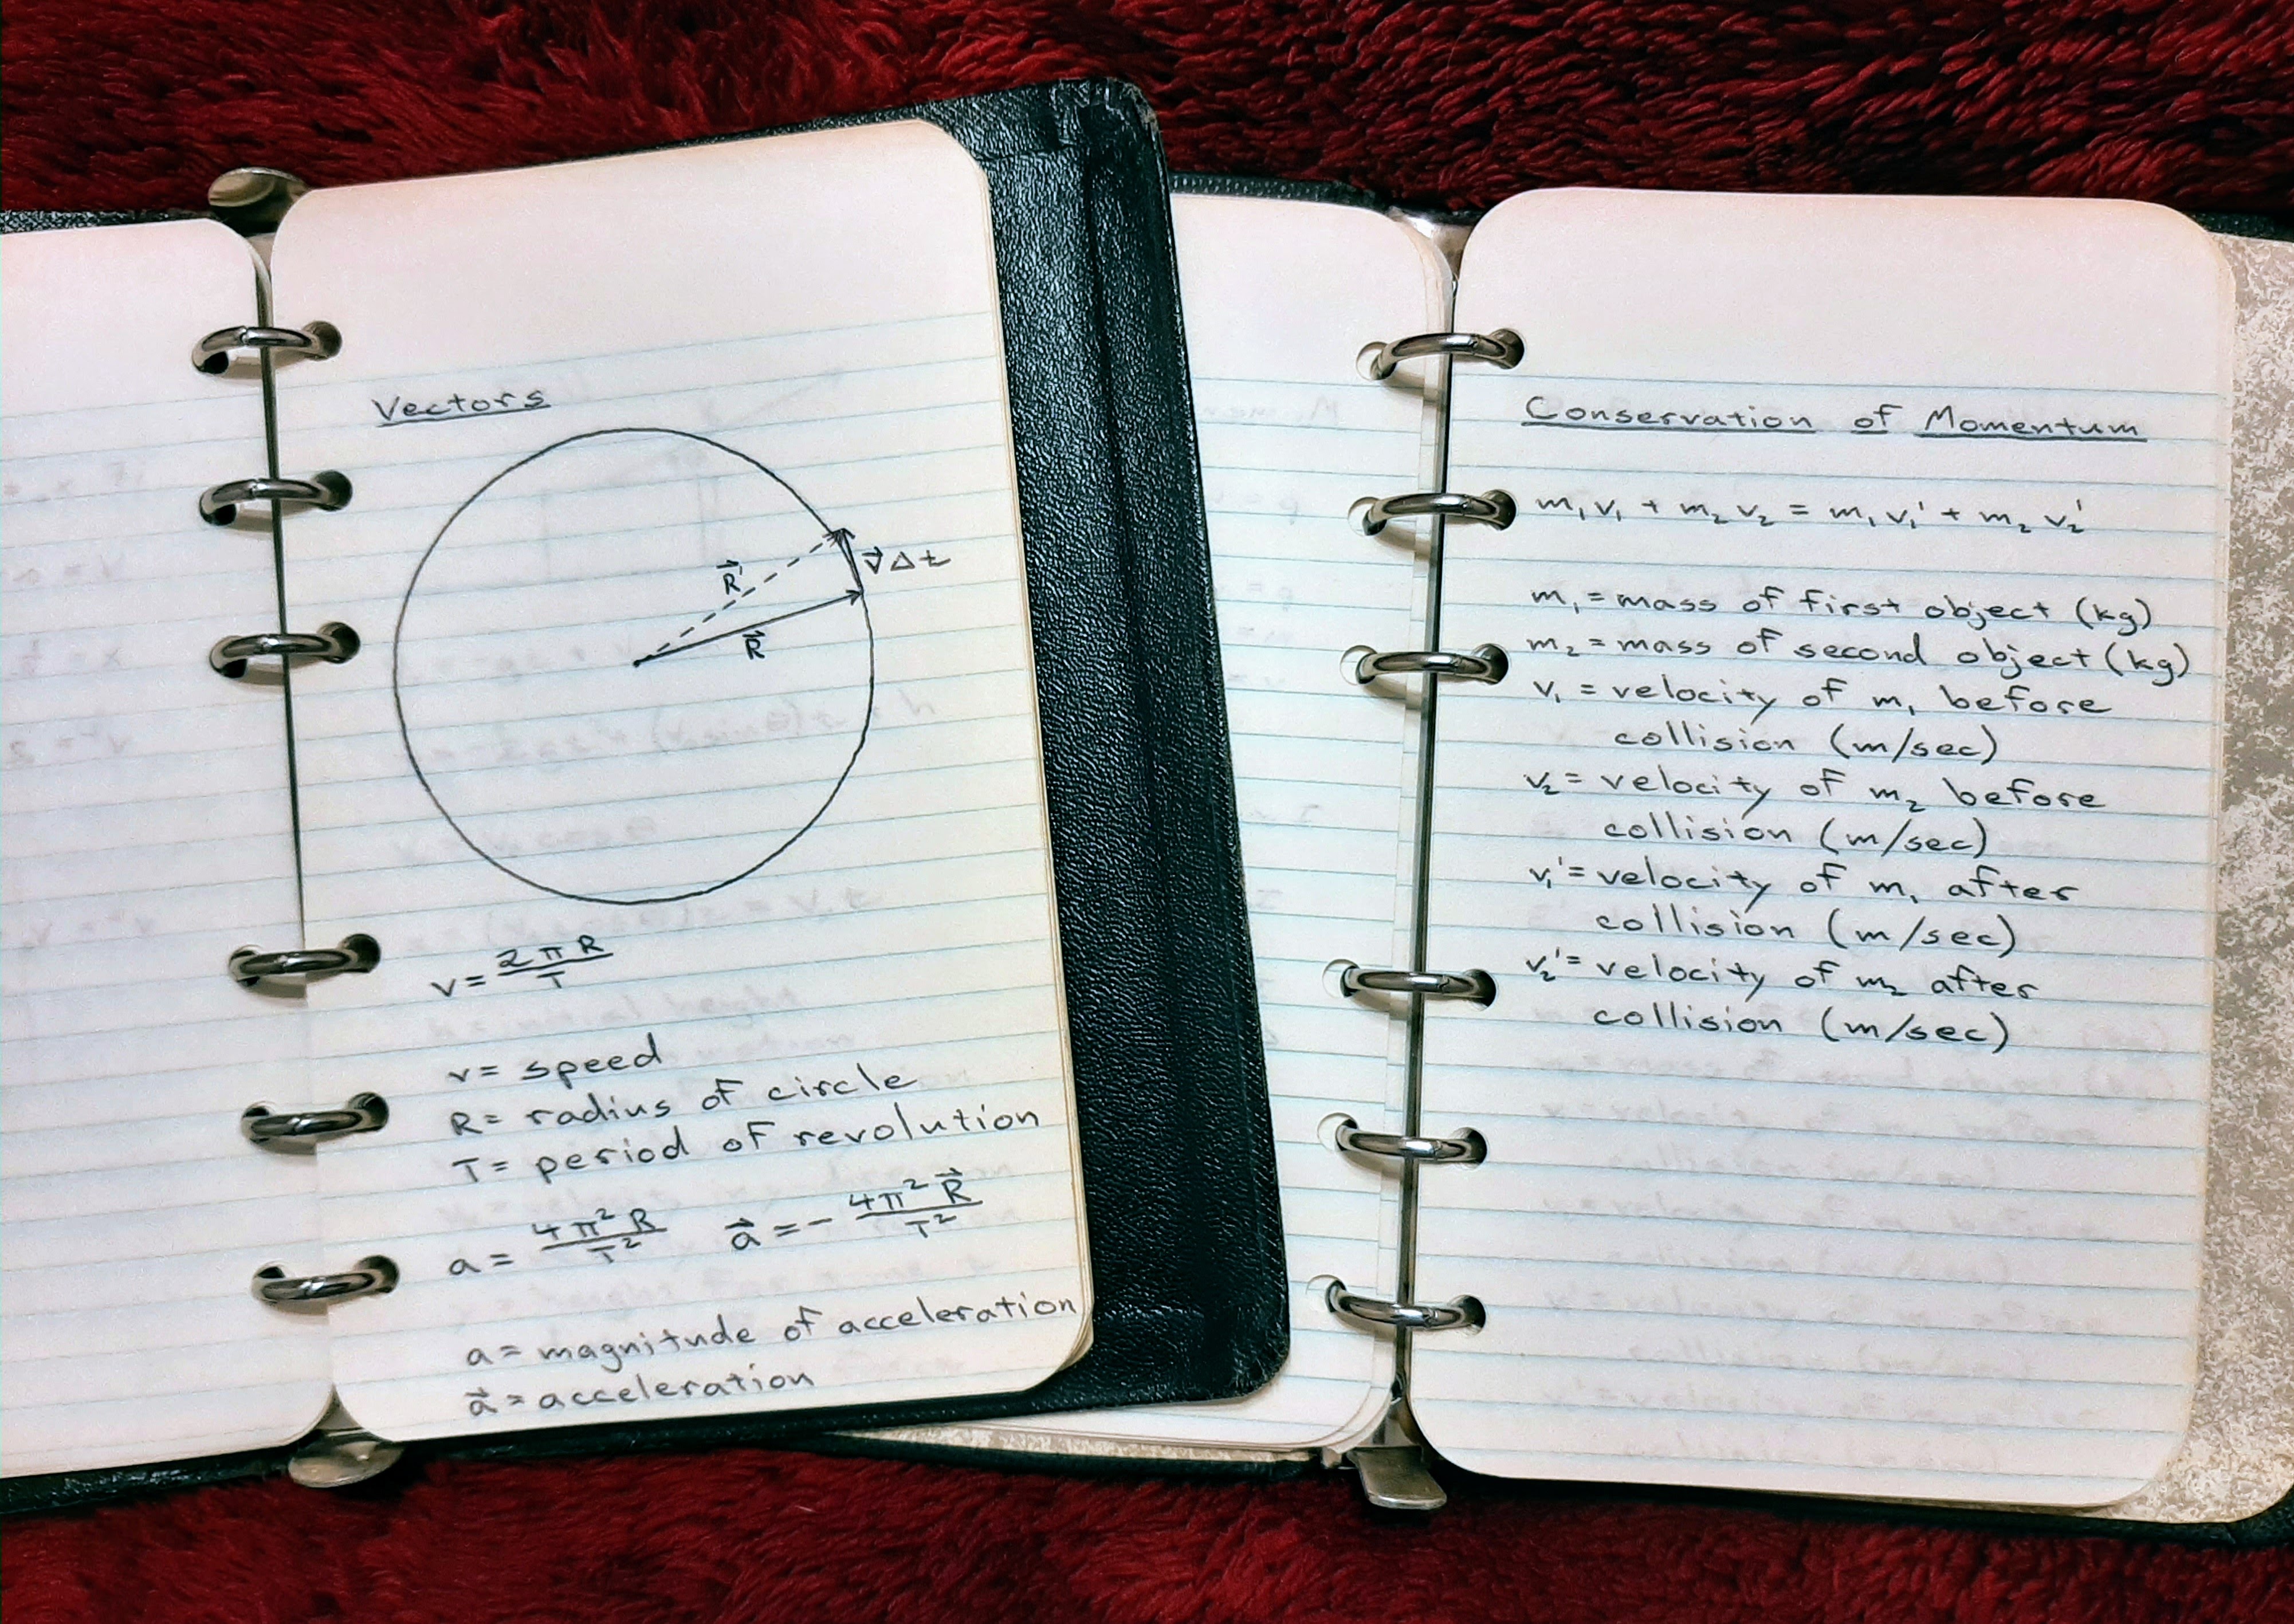 Vectors
R⃗'
V⃗Δt
R⃗
v = 2πR/T
v = speed
R = radius of circle
T = period of revolution
a = 4π²R/T²   a⃗ = - 4π²R⃗/T²
a = magnitude of acceleration
a⃗ = acceleration
Conservation of Momentum
m₁v₁ + m₂v₂ = m₁v₁' + m₂v₂'
m₁ = mass of first object (kg)
m₂ = mass of second object (kg)
v₁ = velocity of m₁ before
collision (m/sec)
v₂ = velocity of m₂ before
collision (m/sec)
v₁' = velocity of m₁ after
collision (m/sec)
v₂' = velocity of m₂ after
collision (m/sec)